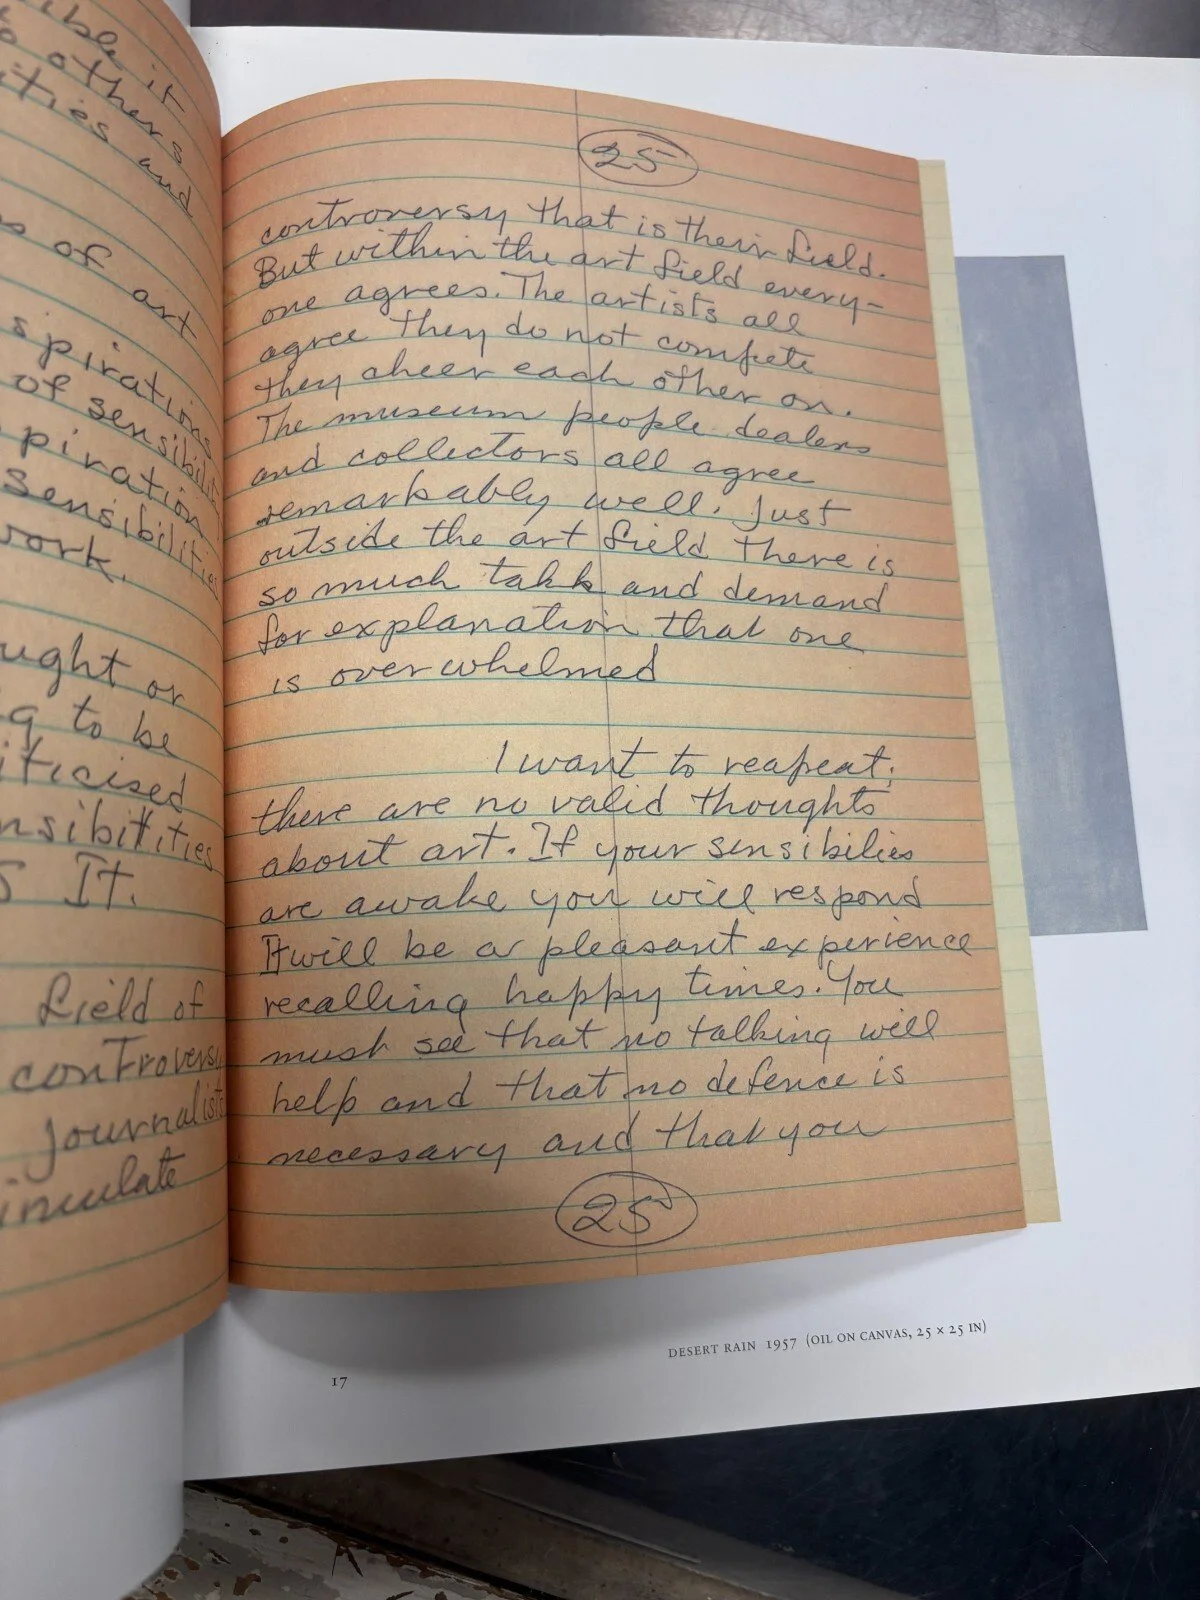 ible it
others
ities and
of
art
spirations
of sensibilit
piration
sensibilities
work.
ught or
g to be
iticised
nsibilities
It.
field of
controversy
journalists
inculate
25
controversy that is their field.
But within the art field every-
one agrees. The artists all
agree they do not compete
they cheer each other on.
The museum people dealers
and collectors all agree
remarkably well. Just
outside the art field there is
so much talk and demand
for explanation that one
is overwhelmed
I want to reapeat;
there are no valid thoughts
about art. If your sensibilies
are awake you will respond
It will be a pleasant experience
recalling happy times. You
must see that no talking will
help and that no defence is
necessary and that you
25
DESERT RAIN 1957 (OIL ON CANVAS, 25 × 25 IN)
17